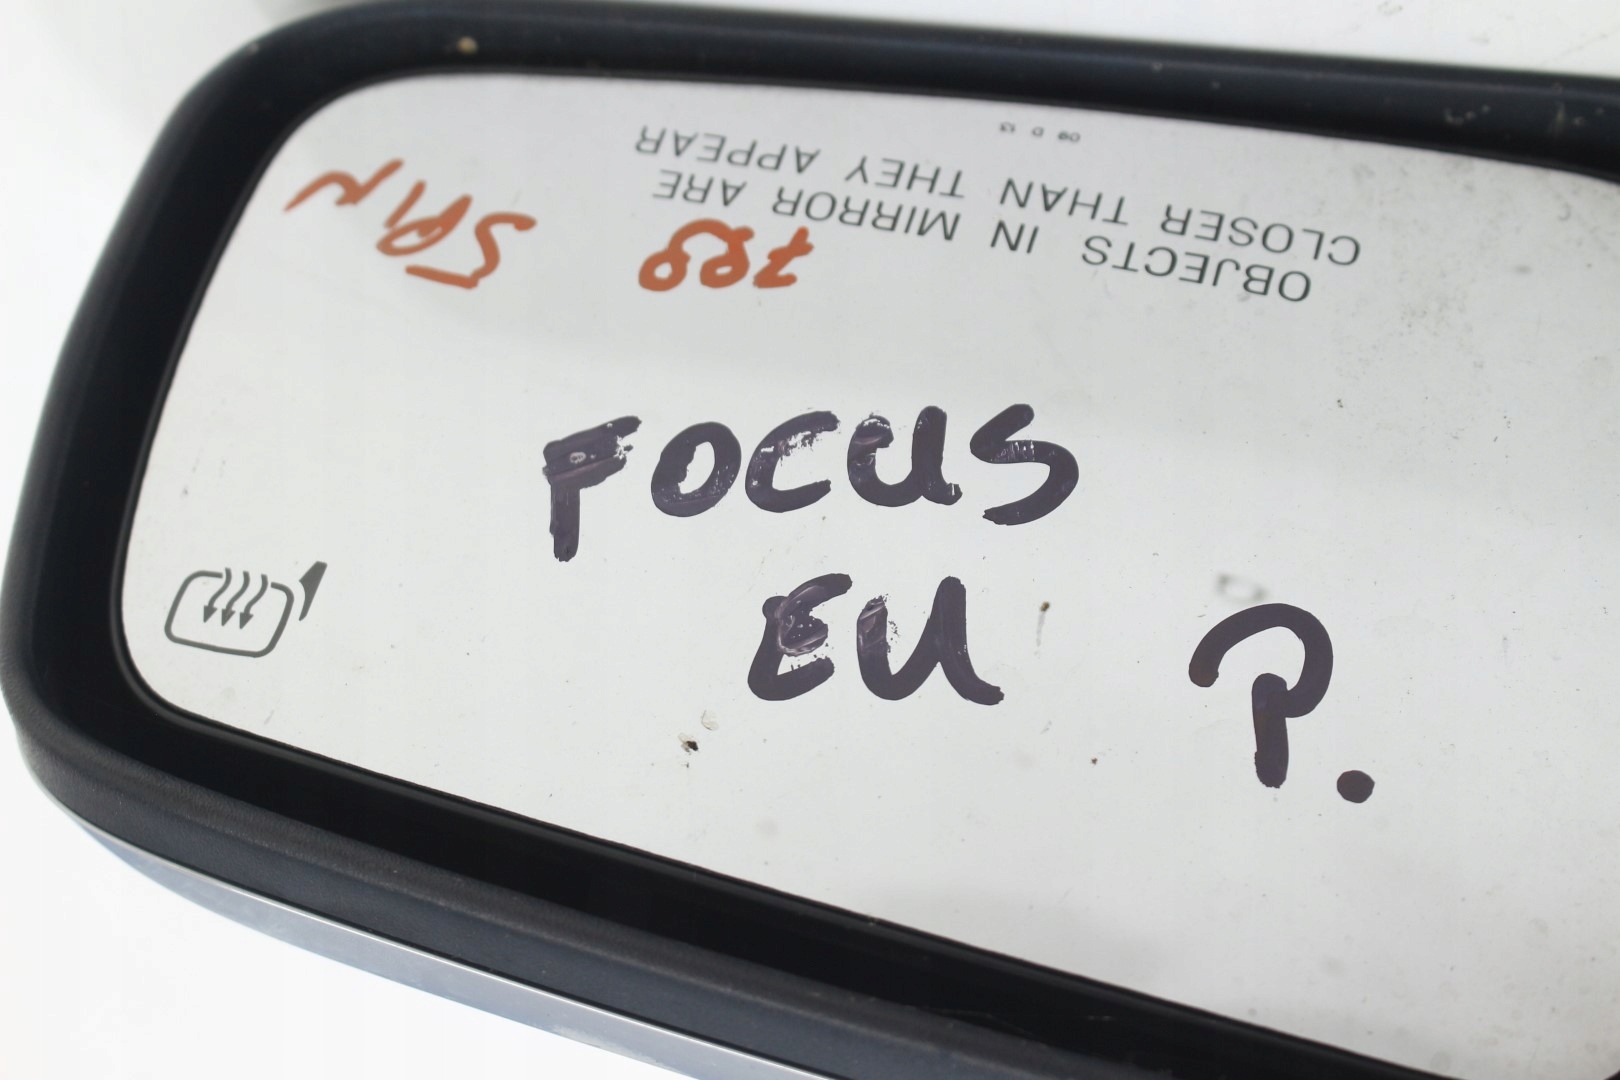 FOCUS
EU P.
OBJECTS IN MIRROR ARE
CLOSER THAN THEY APPEAR
5PIN